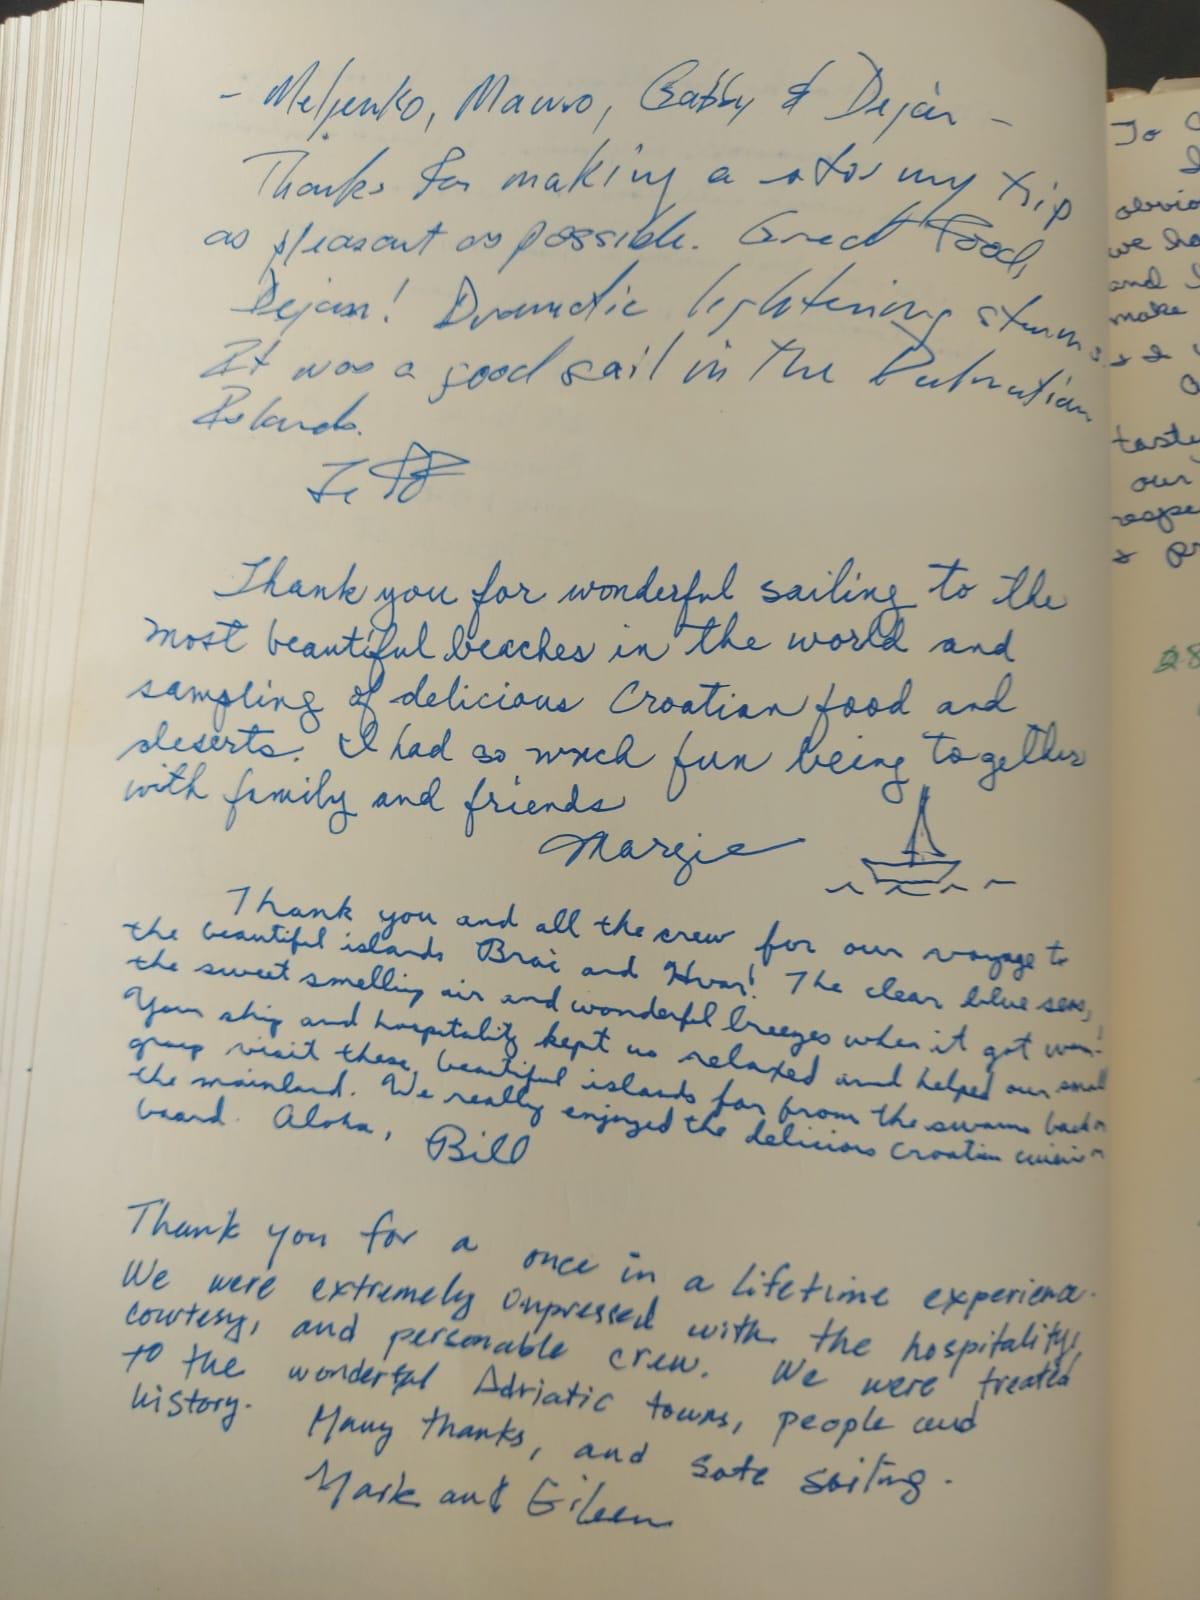 - Meljenko, Mauro, Gabby & Dejan -
Thanks for making a stormy trip
as pleasant as possible. Great Food,
Dejan! Dramatic lightening storms.
It was a good sail in the Dalmatian
Islands.
Thank you for wonderful sailing to the
most beautiful beaches in the world and
sampling of delicious Croatian food and
deserts. I had so much fun being together
with family and friends
Margie
Thank you and all the crew for our voyage to
the beautiful islands Brac and Hvar! The clear blue seas,
the sweet smelling air and wonderful breezes when it got warm.
Your ship and hospitality kept us relaxed and helped our small
group visit these beautiful islands far from the swarms back on
the mainland. We really enjoyed the delicious Croatian cuisine on
board. Aloha, Bill
Thank you for a once in a lifetime experience.
We were extremely impressed with the hospitality,
courtesy, and personable crew. We were treated
to the wonderful Adriatic towns, people and
history.
Many thanks, and safe sailing.
Mark and Eileen
To
obvio
we ha
and I
make
tasty
our
respe
& pr